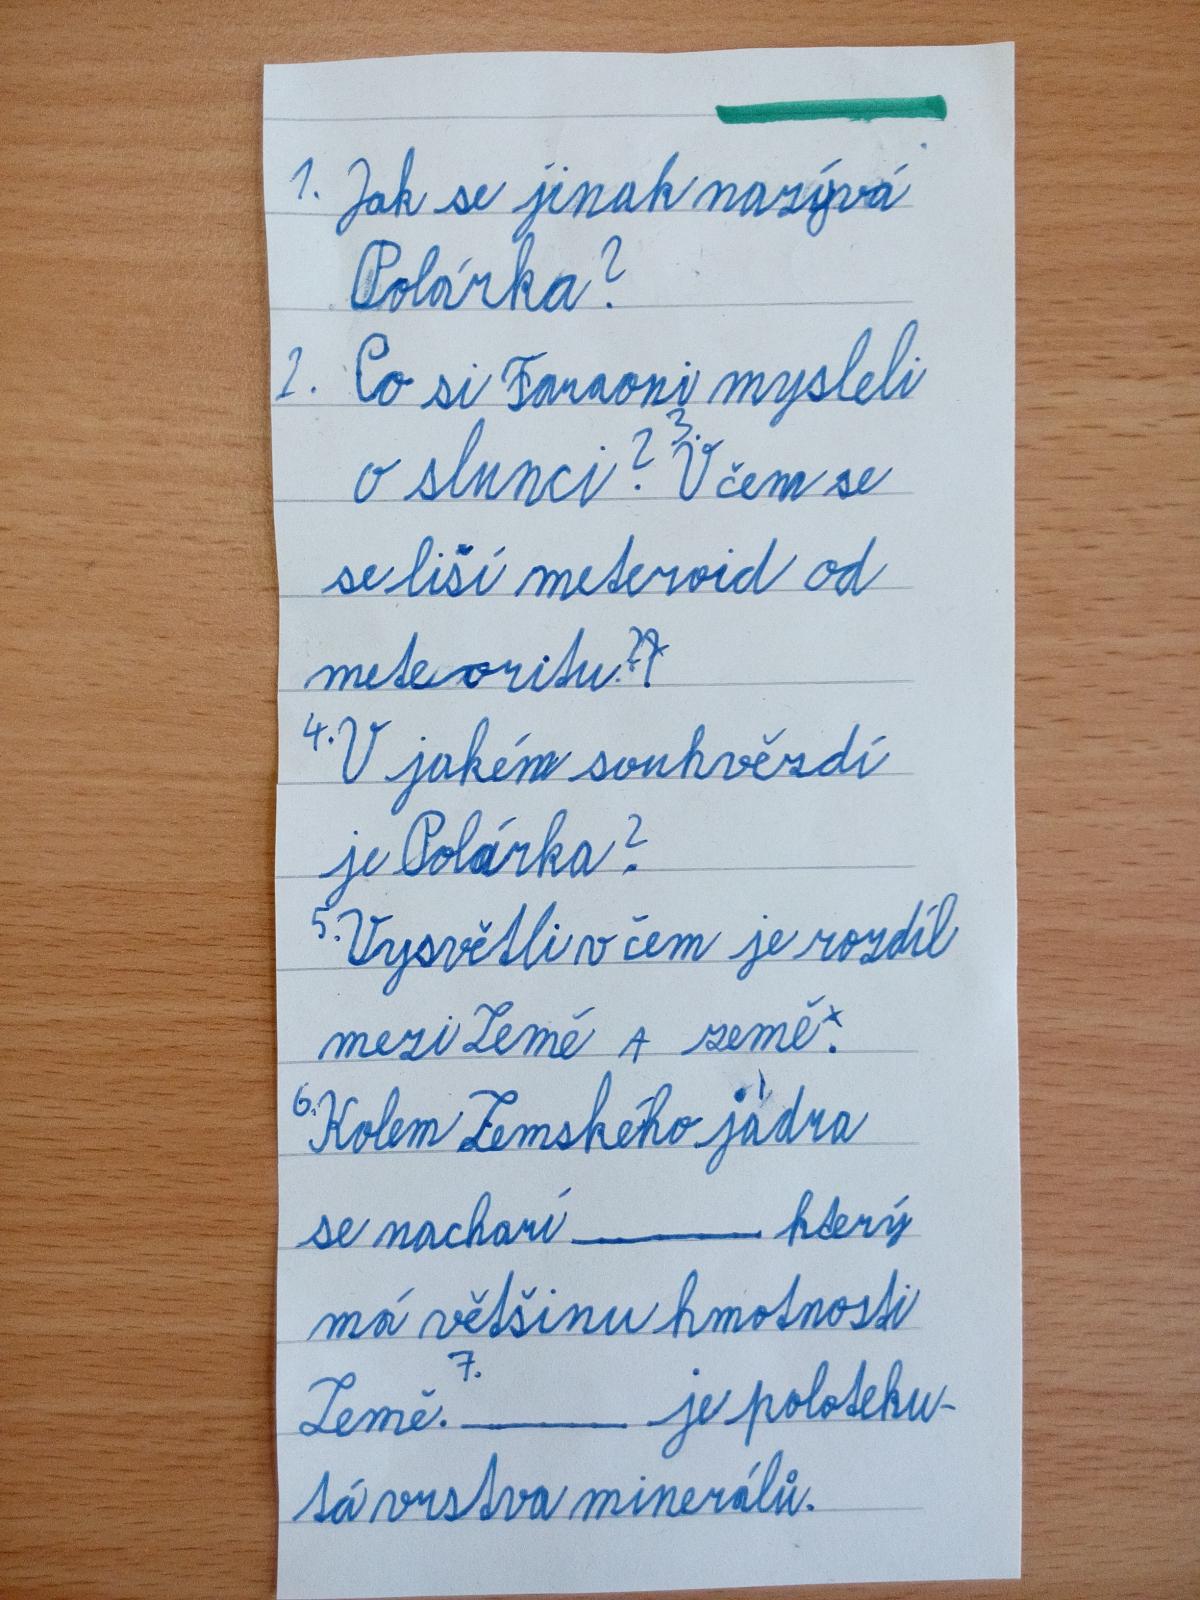 1. Jak se jinak nazývá
Polárka?
2. Co si Faraoni mysleli
o slunci? 3. V čem se
se liší meteroid od
meteoritu?
4. V jakém souhvězdí
je Polárka?
5. Vysvětli v čem je rozdíl
mezi Země A země.
6. Kolem Zemského jádra
se nachazí ______ který
má většinu hmotnosti
Země. 7. ______ je poloteku-
tá vrstva minerálů.